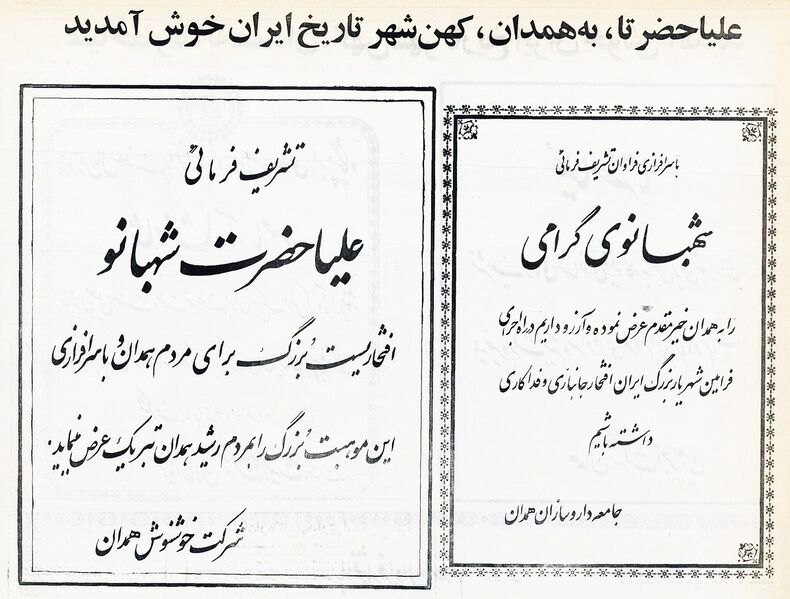 علیاحضرتا، به‌همدان، کهن‌شهر تاریخ ایران خوش آمدید
با سرافرازی فراوان تشریف فرمائی
شهبانوی گرامی
را به همدان خیر مقدم عرض نموده و آرزو داریم در راه اجرای
فرامین شهریار بزرگ ایران افتخار جانبازی و فداکاری
داشته باشیم
جامعه داروسازان همدان
تشریف فرمائی
علیاحضرت شهبانو
افتخاریست بزرگ برای مردم همدان و با سرافرازی
این موهبت بزرگ را بمردم رشید همدان تبریک عرض مینماید.
شرکت خوشنوش همدان